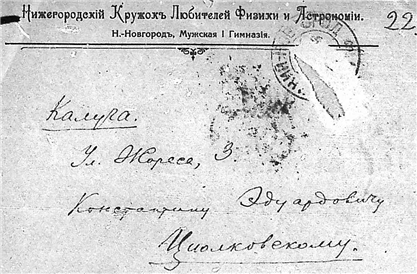 Нижегородскій Кружокъ Любителей Физики и Астрономіи.
Н.-Новгородъ, Мужская I Гимназія.
22
Калуга.
Ул. Жореса, 3
Константину Эдуардовичу
Циолковскому.